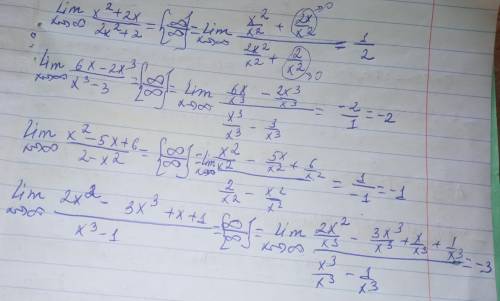 lim x→∞ (x²+2x)/(2x²+2) = {∞/∞} = lim x→∞ (x²/x² + 2x/x² →0)/(2x²/x² + 2/x² →0) = 1/2
lim x→∞ (6x-2x³)/(x³-3) = {∞/∞} = lim x→∞ (6x/x³ - 2x³/x³)/(x³/x³ - 3/x³) = -2/1 = -2
lim x→∞ (x²-5x+6)/(2-x²) = {∞/∞} = lim x→∞ (x²/x² - 5x/x² + 6/x²)/(2/x² - x²/x²) = 1/-1 = -1
lim x→∞ (2x² - 3x³ + x + 1)/(x³-1) = {∞/∞} = lim x→∞ (2x²/x³ - 3x³/x³ + x/x³ + 1/x³)/(x³/x³ - 1/x³) = -3